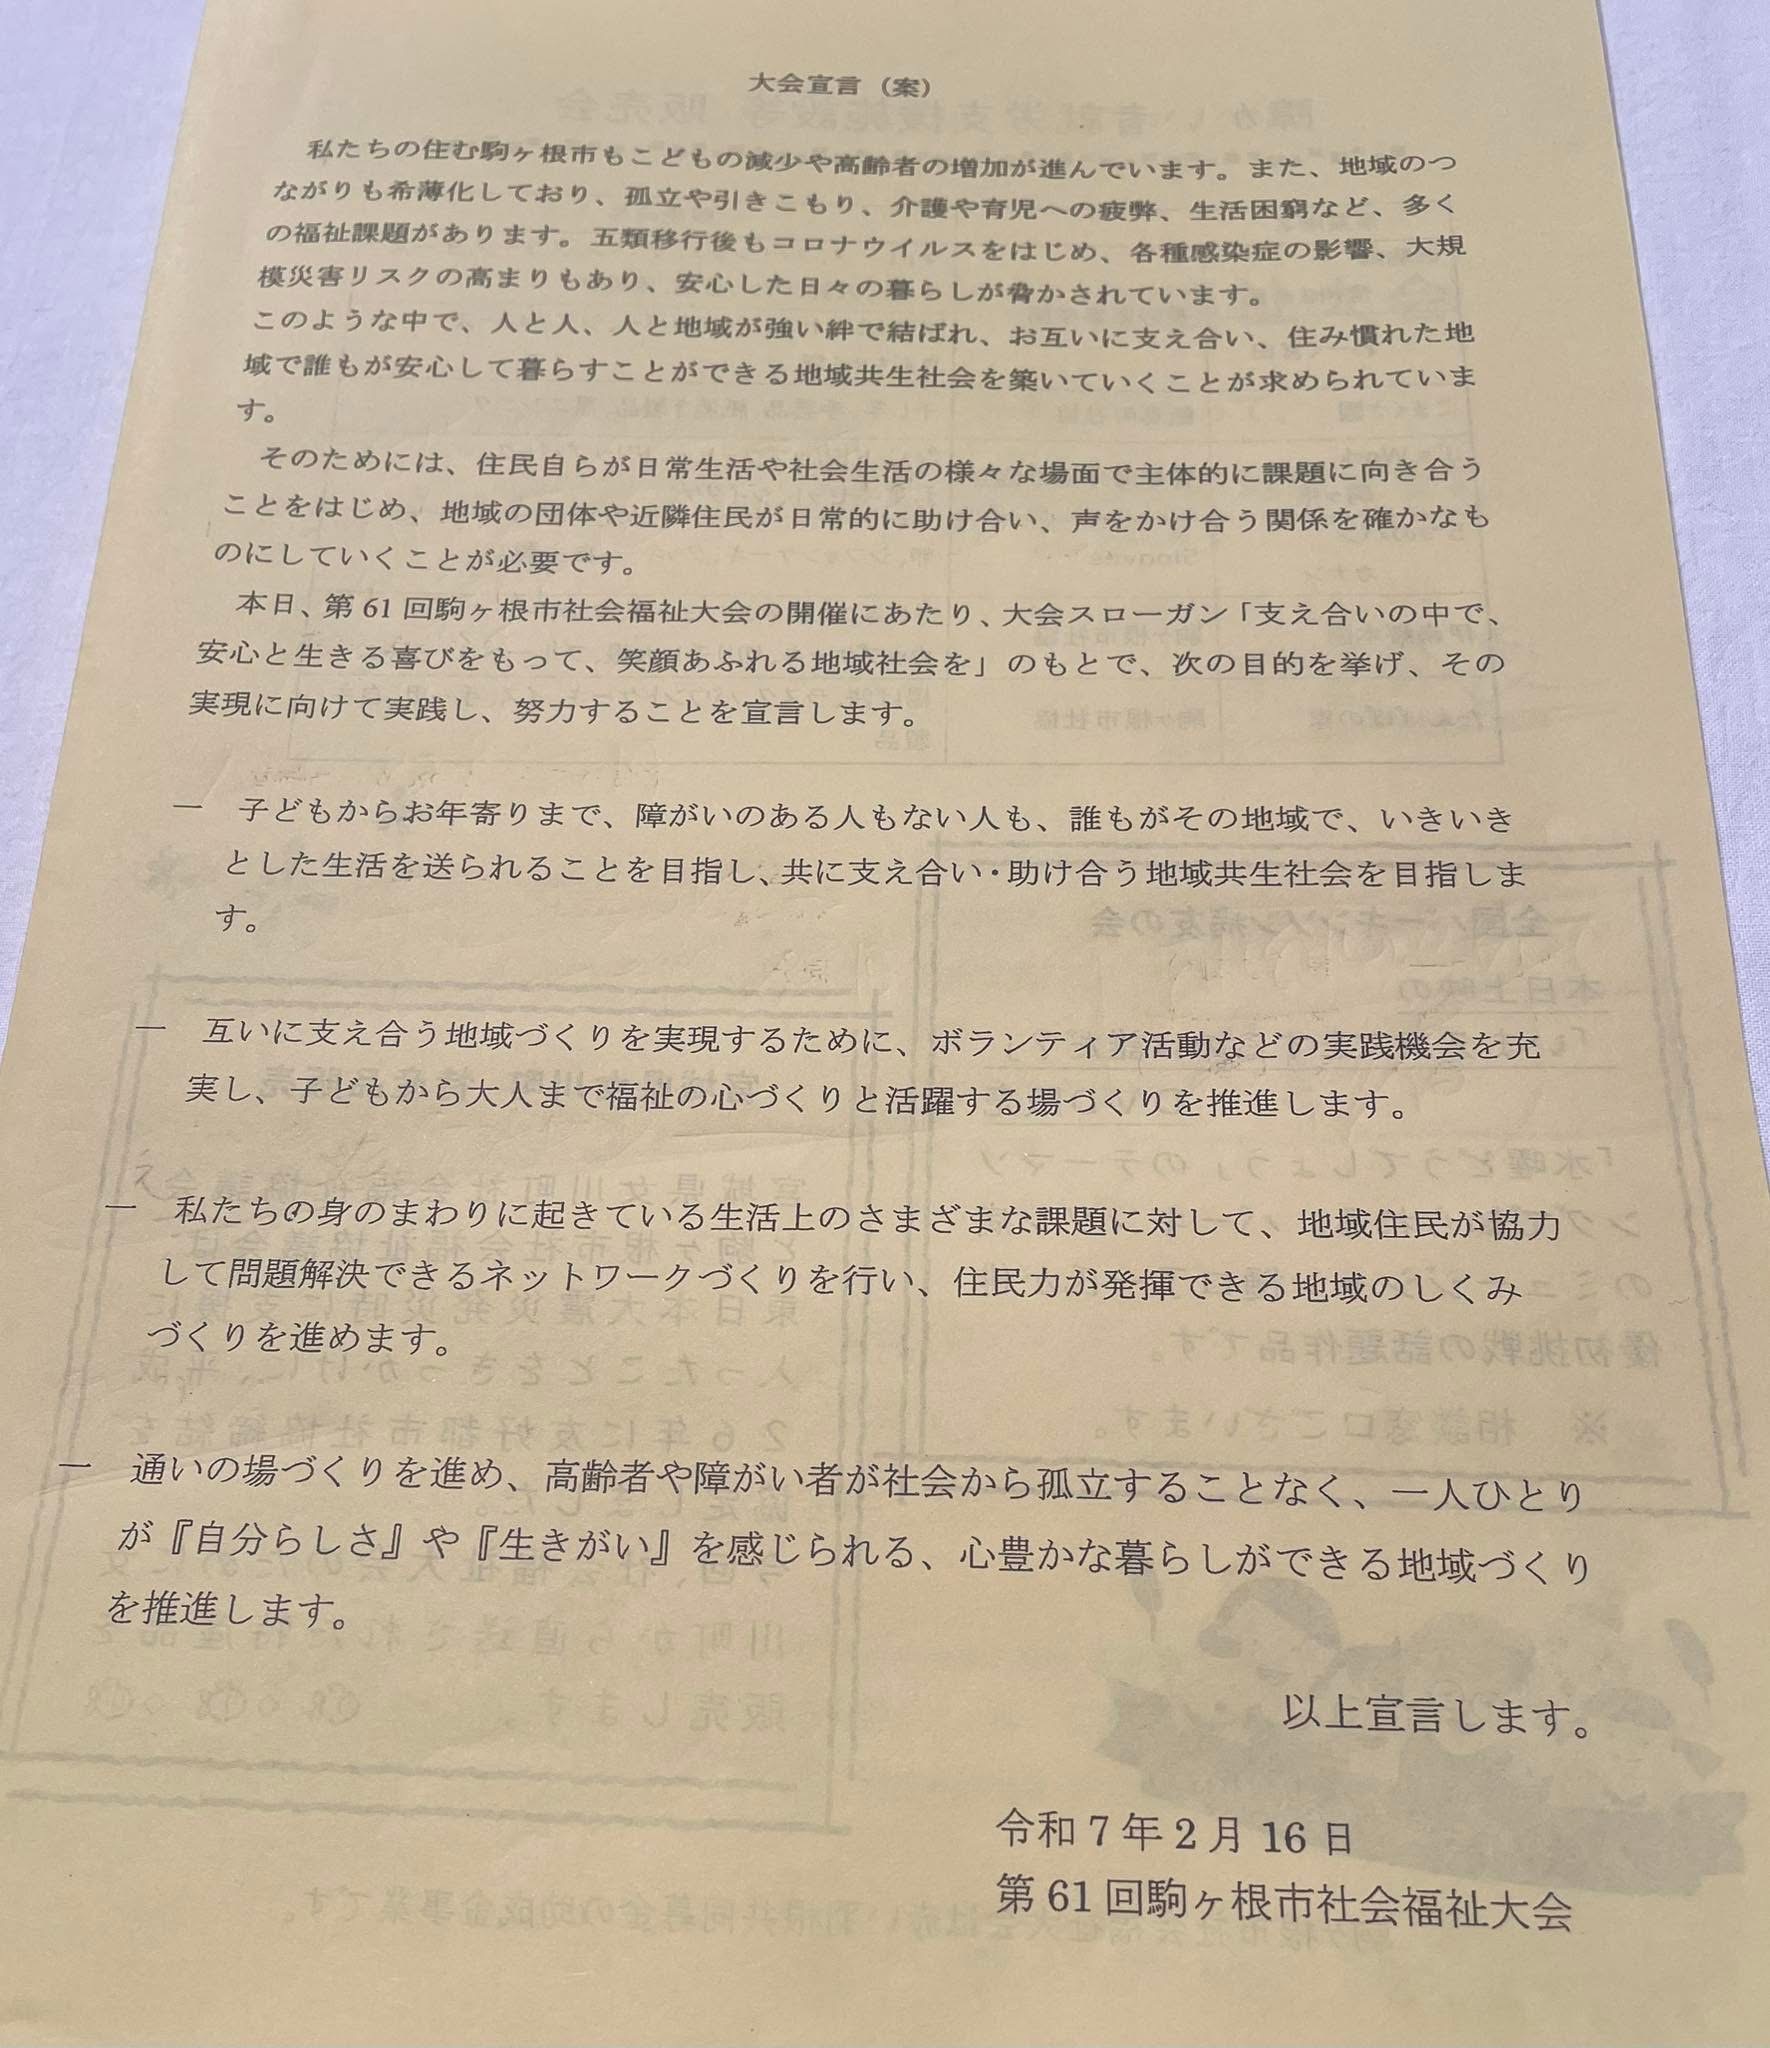 大会宣言（案）
私たちの住む駒ヶ根市もこどもの減少や高齢者の増加が進んでいます。また、地域のつ
ながりも希薄化しており、孤立や引きこもり、介護や育児への疲弊、生活困窮など、多く
の福祉課題があります。五類移行後もコロナウイルスをはじめ、各種感染症の影響、大規
模災害リスクの高まりもあり、安心した日々の暮らしが脅かされています。
このような中で、人と人、人と地域が強い絆で結ばれ、お互いに支え合い、住み慣れた地
域で誰もが安心して暮らすことができる地域共生社会を築いていくことが求められていま
す。
そのためには、住民自らが日常生活や社会生活の様々な場面で主体的に課題に向き合う
ことをはじめ、地域の団体や近隣住民が日常的に助け合い、声をかけ合う関係を確かなも
のにしていくことが必要です。
本日、第61回駒ヶ根市社会福祉大会の開催にあたり、大会スローガン「支え合いの中で、
安心と生きる喜びをもって、笑顔あふれる地域社会を」のもとで、次の目的を挙げ、その
実現に向けて実践し、努力することを宣言します。
一　子どもからお年寄りまで、障がいのある人もない人も、誰もがその地域で、いきいき
とした生活を送られることを目指し、共に支え合い・助け合う地域共生社会を目指しま
す。
一　互いに支え合う地域づくりを実現するために、ボランティア活動などの実践機会を充
実し、子どもから大人まで福祉の心づくりと活躍する場づくりを推進します。
一　私たちの身のまわりに起きている生活上のさまざまな課題に対して、地域住民が協力
して問題解決できるネットワークづくりを行い、住民力が発揮できる地域のしくみ
づくりを進めます。
一　通いの場づくりを進め、高齢者や障がい者が社会から孤立することなく、一人ひとり
が『自分らしさ』や『生きがい』を感じられる、心豊かな暮らしができる地域づくり
を推進します。
以上宣言します。
令和7年2月16日
第61回駒ヶ根市社会福祉大会